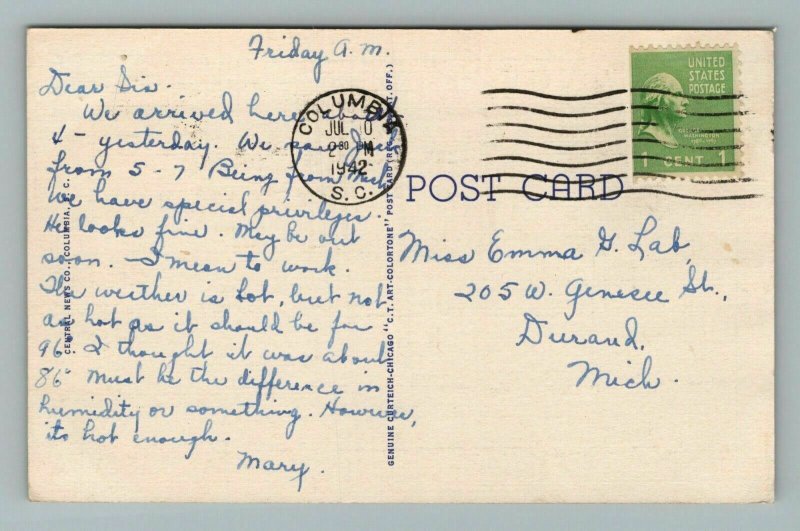 Friday A.M.
Dear Sis.
We arrived here about
4 - yesterday. We saw
from 5 - 7 Being from Mich
We have special privileges.
He looks fine. May be out
soon. I mean to work.
The weather is hot, but not
as hot as it should be for
96° I thought it was about
86° Must be the difference in
humidity or something. However,
its hot enough.
Mary.
CENTRAL NEWS CO., COLUMBIA, S. C.
GENUINE CURTEICH-CHICAGO "C.T. ART-COLORTONE" POST CARD (REG. U.S. PAT. OFF.)
COLUMBIA
JUL 10
2 30 PM
1942
S. C.
UNITED
STATES
POSTAGE
GEORGE
WASHINGTON
1 CENT 1
POST CARD
Miss Emma G. Lab,
205 W. Genesee St.,
Durand,
Mich.